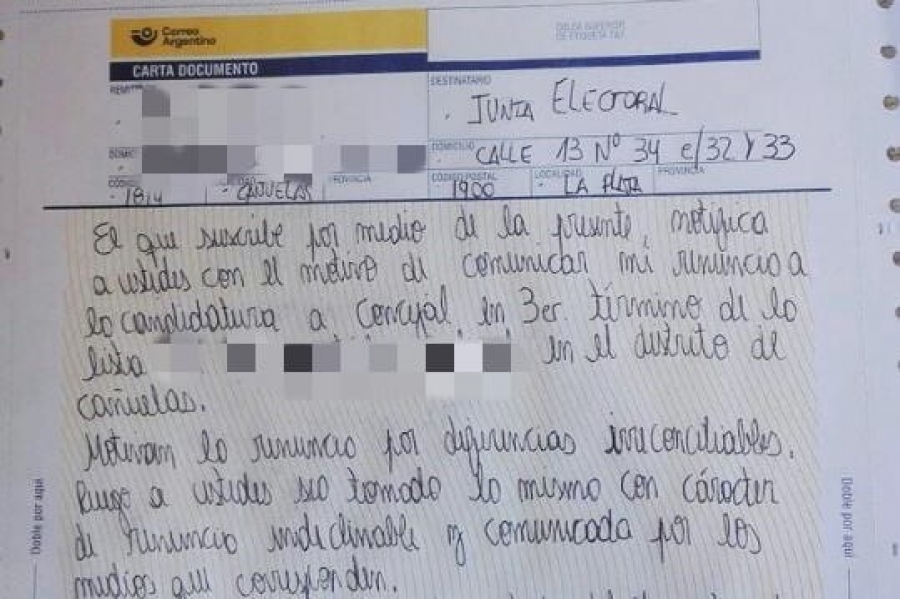 Correo
Argentino
DOBLA SUPERIOR
DE ETIQUETA T&T
CARTA DOCUMENTO
DESTINATARIO
JUNTA ELECTORAL
DOMICILIO CALLE 13 Nº 34 e/32 Y 33
CÓDIGO POSTAL LOCALIDAD PROVINCIA
PROVINCIA
1814 CAÑUELAS 1900 LA PLATA
El que suscribe por medio de la presente, notifica
a ustedes con el motivo de comunicar mi renuncia a
la candidatura a Concejal, en 3er. término de la
lista en el distrito de
cañuelas.
Motivan la renuncia por diferencias irreconciliables.
Ruego a ustedes sea tomado lo mismo con cáracter
de renuncia indeclinable y comunicada por los
medios que corresponden.
Doble por aquí
Doble por aquí